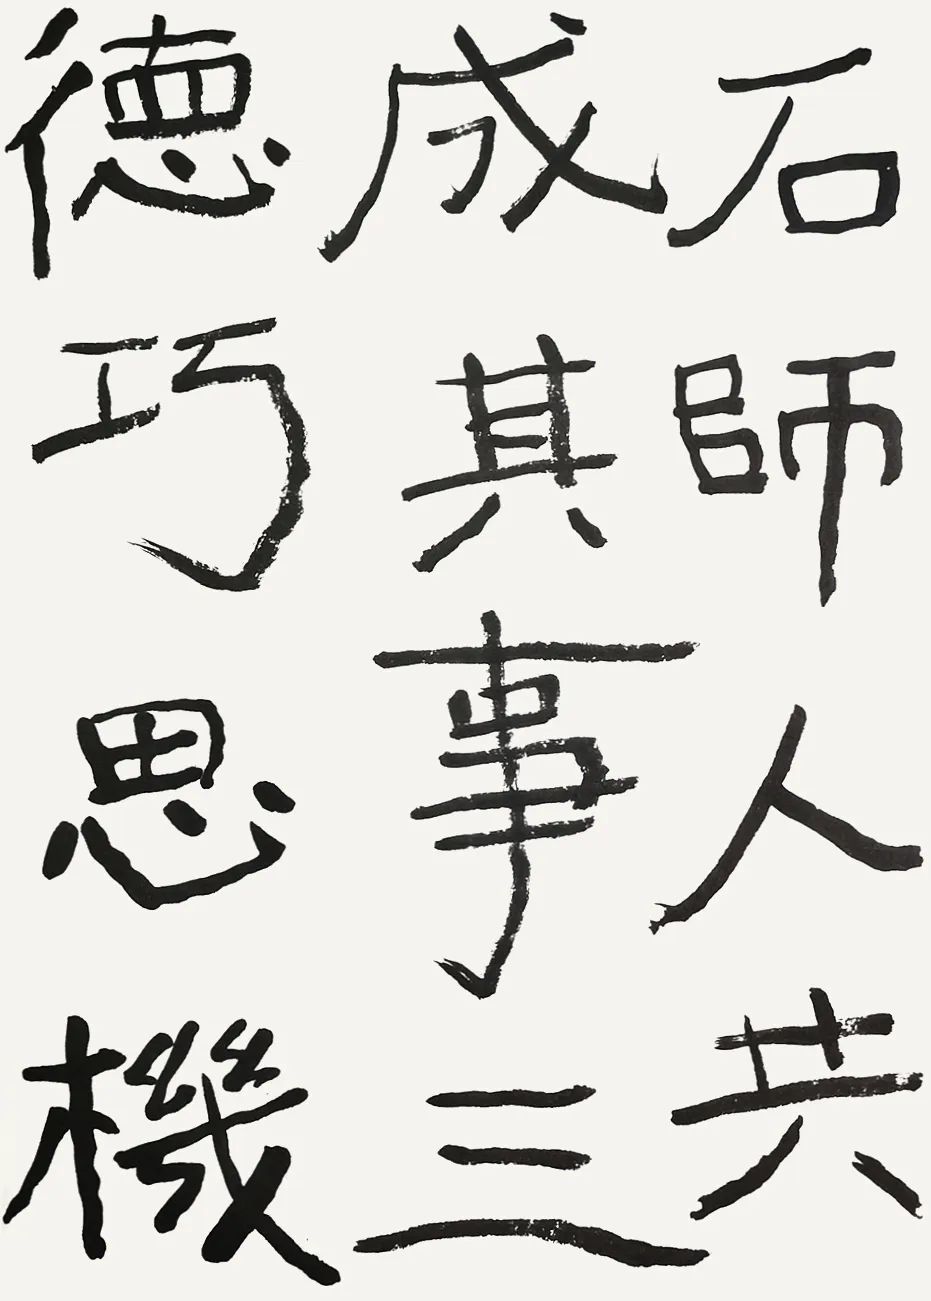 石師人共
成其事三
德巧思機